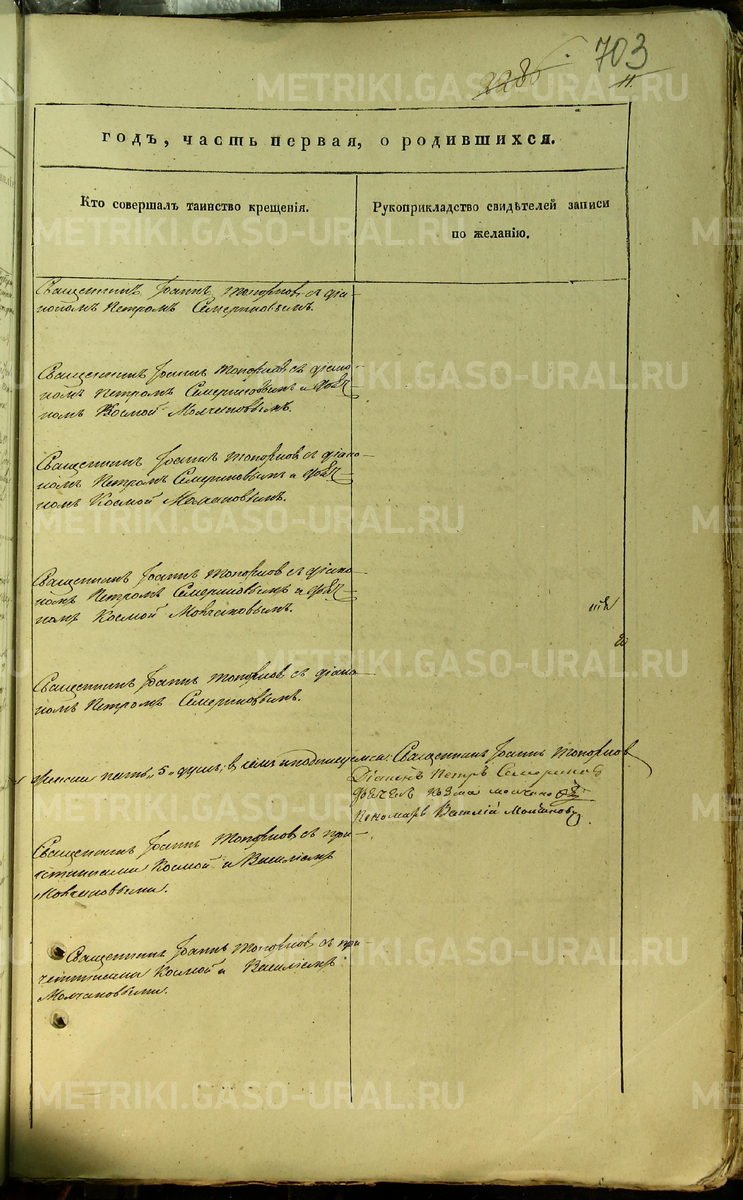 703
228
11
METRIKI.GASO-URAL.RU
годъ, часть первая, о родившихся.
Кто совершалъ таинство крещенія.
Рукоприкладство свидѣтелей записи
по желанію.
Священникъ Іоаннъ Топорковъ съ діа-
кономъ Петромъ
Священникъ Іоаннъ Топорковъ съ діако-
номъ Петромъ и дьяч-
комъ Космой Молчановымъ.
Священникъ Іоаннъ Топорковъ съ діако-
номъ Петромъ и дьяч-
комъ Космой Молчановымъ.
Священникъ Іоаннъ Топорковъ съ діако-
номъ Петромъ и дьяч-
комъ Космой Молчановымъ.
Священникъ Іоаннъ Топорковъ съ діако-
номъ Петромъ
женска пять „5„ душъ, въ семъ и подписуемся: Священникъ Іоаннъ Топорковъ
Діаконъ Петръ
Козма Молчановъ
Пономарь Василій Молчановъ
Священникъ Іоаннъ Топорковъ съ при-
четниками Космой и Василіемъ
Молчановыми.
Священникъ Іоаннъ Топорковъ съ при-
четниками Космой и Василіемъ
Молчановыми.